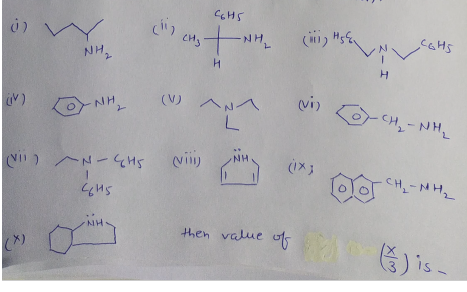 (i) NH₂
(ii) C₆H₅ CH₃ NH₂ H
(iii) H₅C₆ N H C₆H₅
(iv) NH₂
(v) N
(vi) CH₂-NH₂
(vii) N-C₆H₅ C₆H₅
(viii) N̈H
(ix) CH₂-NH₂
(x) N̈H then value of (x/3) is -